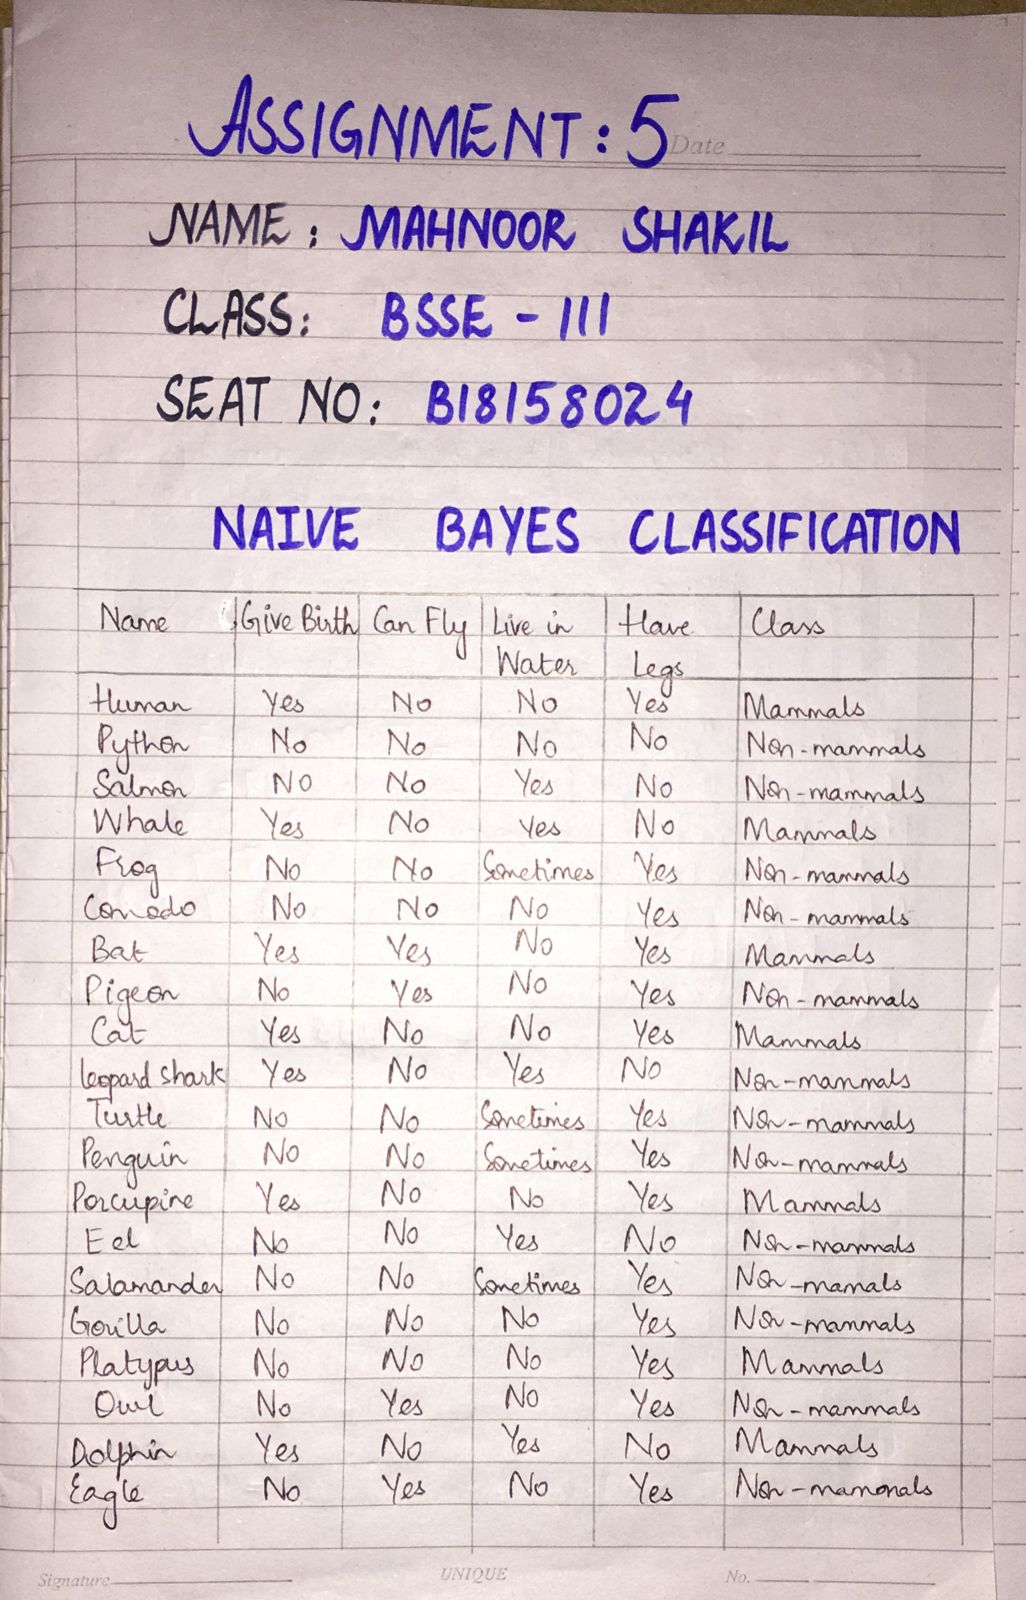 ASSIGNMENT: 5
Date
NAME: MAHNOOR SHAKIL
CLASS: BSSE - III
SEAT NO: B18158024
NAIVE BAYES CLASSIFICATION
Name Give Birth Can Fly Live in Water Have Legs Class
Human Yes No No Yes Mammals
Python No No No No Non-mammals
Salmon No No Yes No Non-mammals
Whale Yes No Yes No Mammals
Frog No No Sometimes Yes Non-mammals
Comodo No No No Yes Non-mammals
Bat Yes Yes No Yes Mammals
Pigeon No Yes No Yes Non-mammals
Cat Yes No No Yes Mammals
leopard shark Yes No Yes No Non-mammals
Turtle No No Sometimes Yes Non-mammals
Penguin No No Sometimes Yes Non-mammals
Porcupine Yes No No Yes Mammals
Eel No No Yes No Non-mammals
Salamander No No Sometimes Yes Non-mamals
Gorilla No No No Yes Non-mammals
Platypus No No No Yes Mammals
Owl No Yes No Yes Non-mammals
Dolphin Yes No Yes No Mammals
Eagle No Yes No Yes Non-mammals
Signature UNIQUE No.